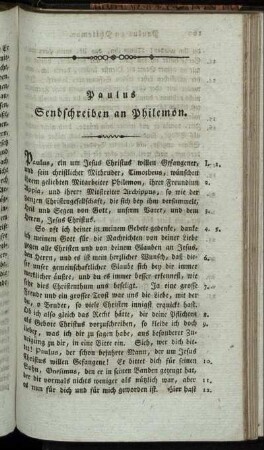 Paulus
Sendschreiben an Philemon.
Paulus, ein um Jesus Christus willen Gefangener, 1, 1.
und sein christlicher Mitbruder, Timotheus, wünschet
ihrem geliebten Mitarbeiter Philemon, ihrer Freundinn 2.
Appia, und ihrem Mitstreiter Archippus, so wie der
ganzen Christengesellschaft, die sich bey ihm versammelt,
Heil und Segen von Gott, unserm Vater, und dem 3.
Herrn, Jesus Christus.
So oft ich deiner in meinem Gebete gedenke, dank 4.
ich meinem Gott für die Nachrichten von deiner Liebe 5.
gegen alle Christen und von deinem Glauben an Jesum,
den Herrn, und es ist mein herzlicher Wunsch, daß die- 6.
ser unser gemeinschaftlicher Glaube sich bey dir immer
thätiger äußere, und da es immer besser erkenne, wie
sehr dies Christenthum uns beseligt. Ja eine gar große 7.
Freude und ein großer Trost war mir die Liebe, mit der
du, o Bruder, so viele Christen innigst erquickt hast.
Ob ich also gleich das Recht hätte, dir deine Pflichten 8.
als Gebote Christus vorzuschreiben, so kleide ich doch 9.
lieber, was ich dir zu sagen habe, aus besonderer Zu-
neigung zu dir, in eine Bitte ein. Sieh, wer dich bit-
tet! Paulus, der schon bejahrte Mann, der um Jesus
Christus willen Gefangene! Er bittet dich für seinen 10.
Sohn, Onesimus, den er in seinen Banden gezeugt hat,
der dir vormals nichts weniger als nützlich war, aber 11.
es nun für dich und für mich geworden ist. Hier hast 12.